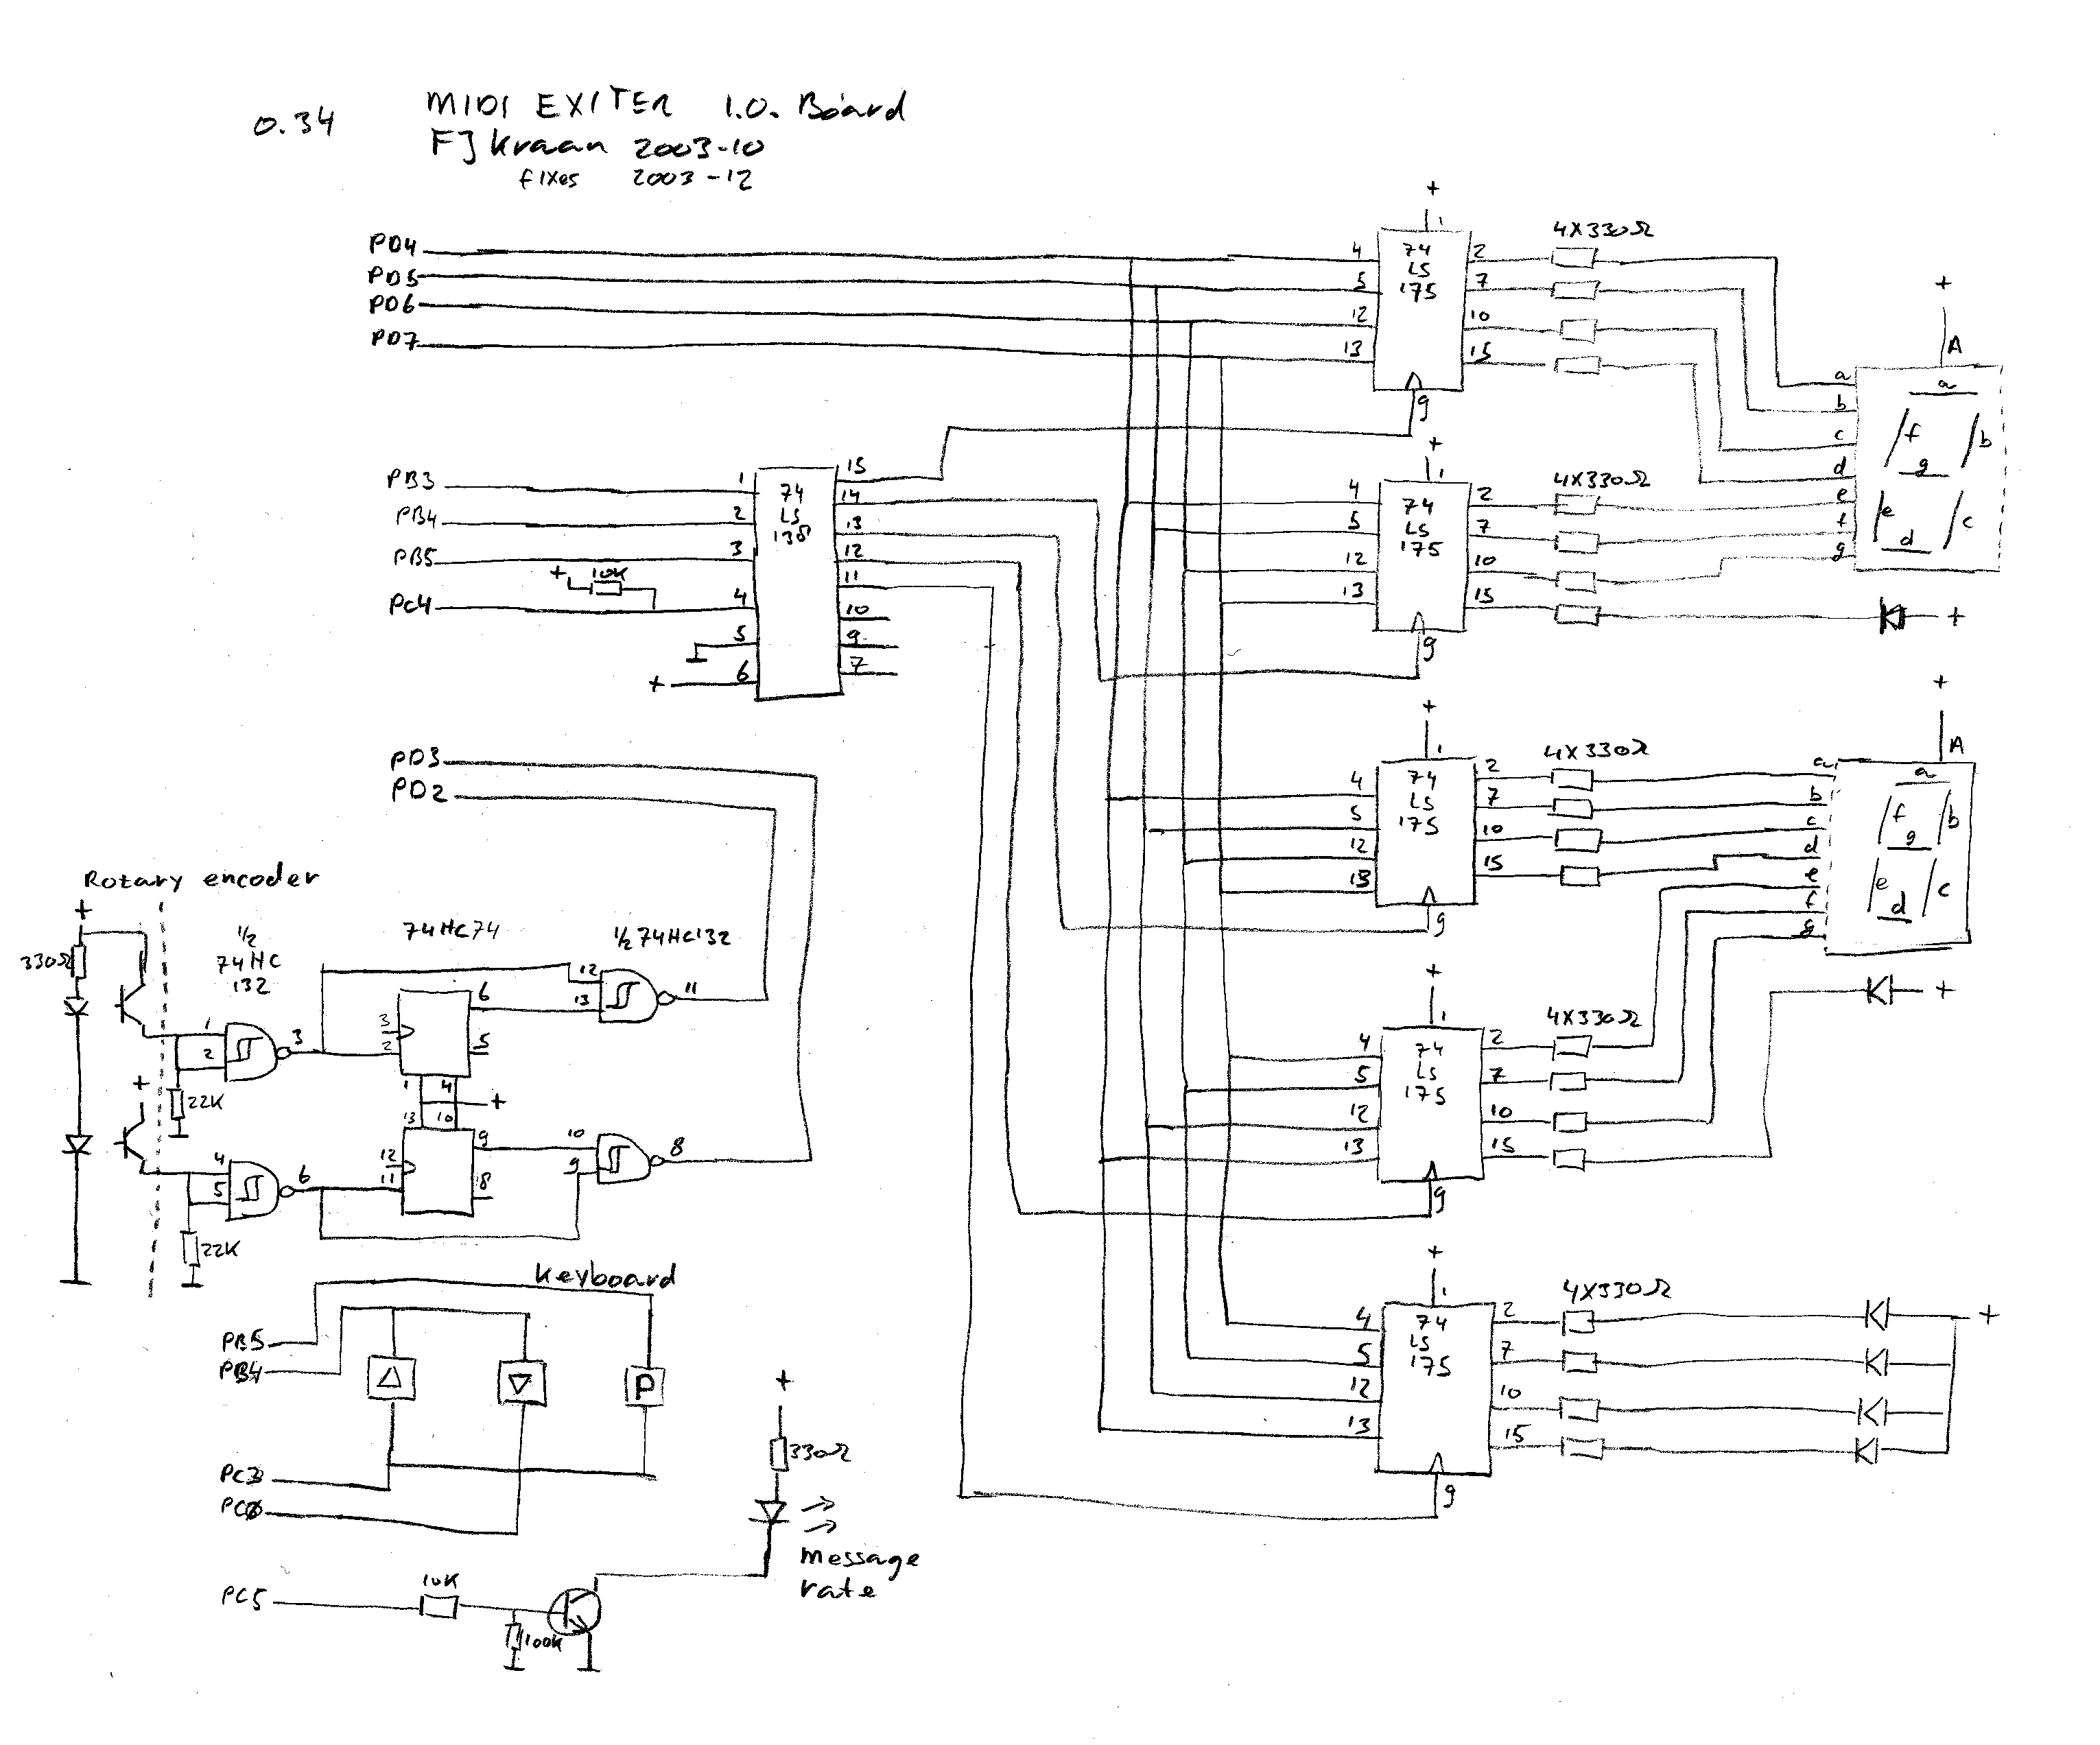 0.34
MIDI EXITER I.O. Board
FJ Kraan 2003-10
fixes 2003-12
PD4
PD5
PD6
PD7
PB3
PB4
PB5
PC4
+ 10K
1
2
3
4
5
6
+
74
LS
138
15
14
13
12
11
10
9
7
+
1
4
5
12
13
74
LS
175
2
7
10
15
9
4X330Ω
+
A
a
b
c
d
e
f
g
a
f
b
g
e
d
c
+
1
4
5
12
13
74
LS
175
2
7
10
15
9
4X330Ω
+
+
1
4
5
12
13
74
LS
175
2
7
10
15
9
4X330Ω
+
A
a
b
c
d
e
f
g
a
f
b
g
e
d
c
+
1
4
5
12
13
74
LS
175
2
7
10
15
9
4X330Ω
+
+
1
4
5
12
13
74
LS
175
2
7
10
15
9
4X330Ω
+
PD3
PD2
Rotary encoder
+
330Ω
1/2
74HC
132
74HC74
1/2 74HC132
1
2
3
22K
3
2
6
5
1
4
+
13
10
12
13
11
+
4
5
6
22K
12
11
9
8
10
9
8
Keyboard
PB5
PB4
P
PC3
PC5
10K
100K
+
330Ω
message
rate